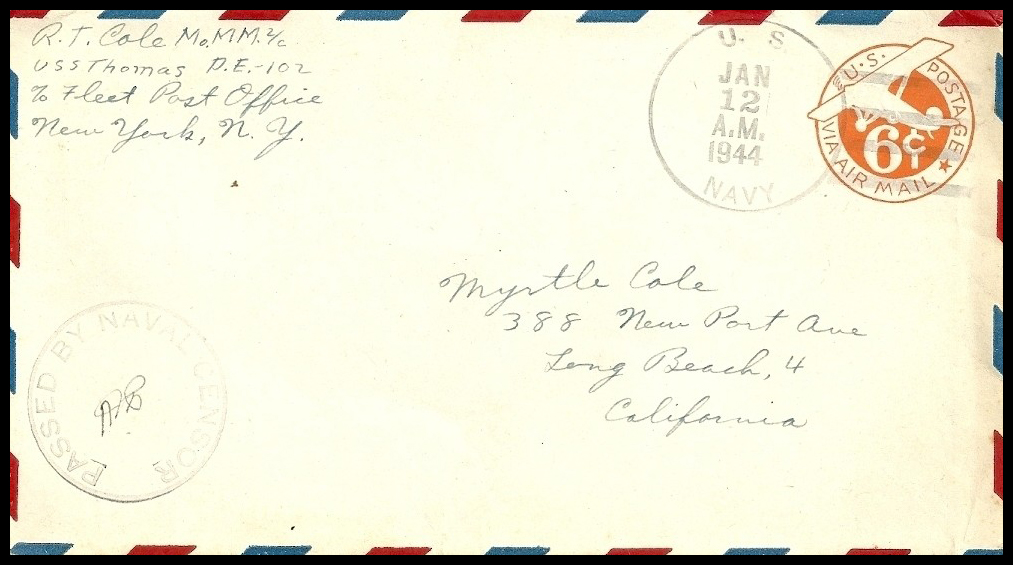 R. T. Cole Mo.MM.2/c
USS Thomas D.E.-102
℅ Fleet Post Office
New York, N. Y.
U. S.
JAN
12
A.M.
1944
NAVY
U.S. POSTAGE
6¢
VIA AIR MAIL
Myrtle Cole
388 New Port Ave
Long Beach, 4
California
PASSED BY NAVAL CENSOR